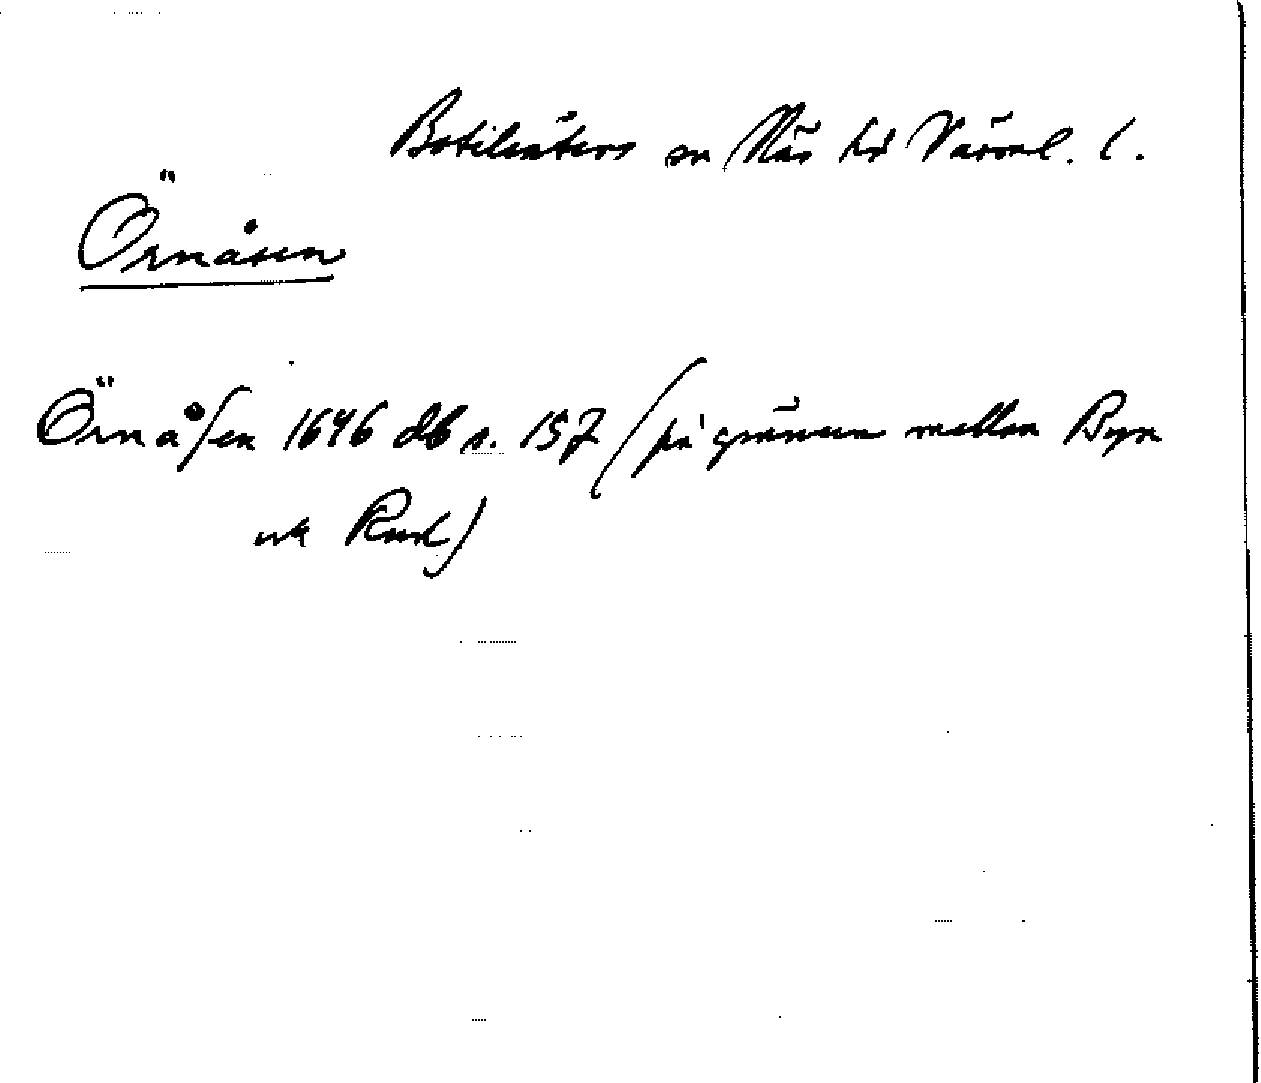 Botilsäters sn Näs hd Värml. l.
Örnåsen
Örnåſen 1646 db s. 157 (på gränsen mellan Byn
och Rud)